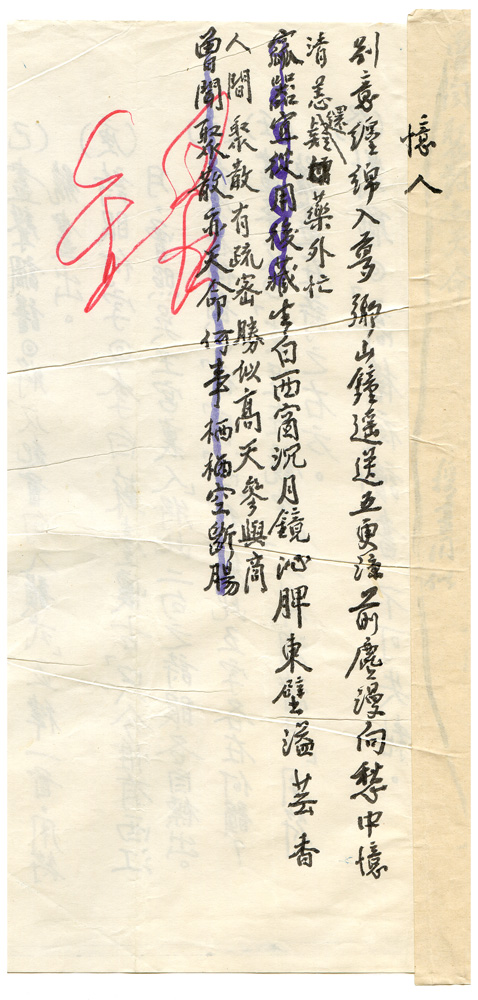 憶人
別意纏綿入夢鄉山鐘遙送五更涼前塵漫向愁中憶
清恙還疑藥外忙
器宜從用後藏生白西窗沉月鏡沁脾東壁溢芸香
人間聚散有疏密勝似高天參與商
曾聞聚散亦天命何事栖栖空斷腸